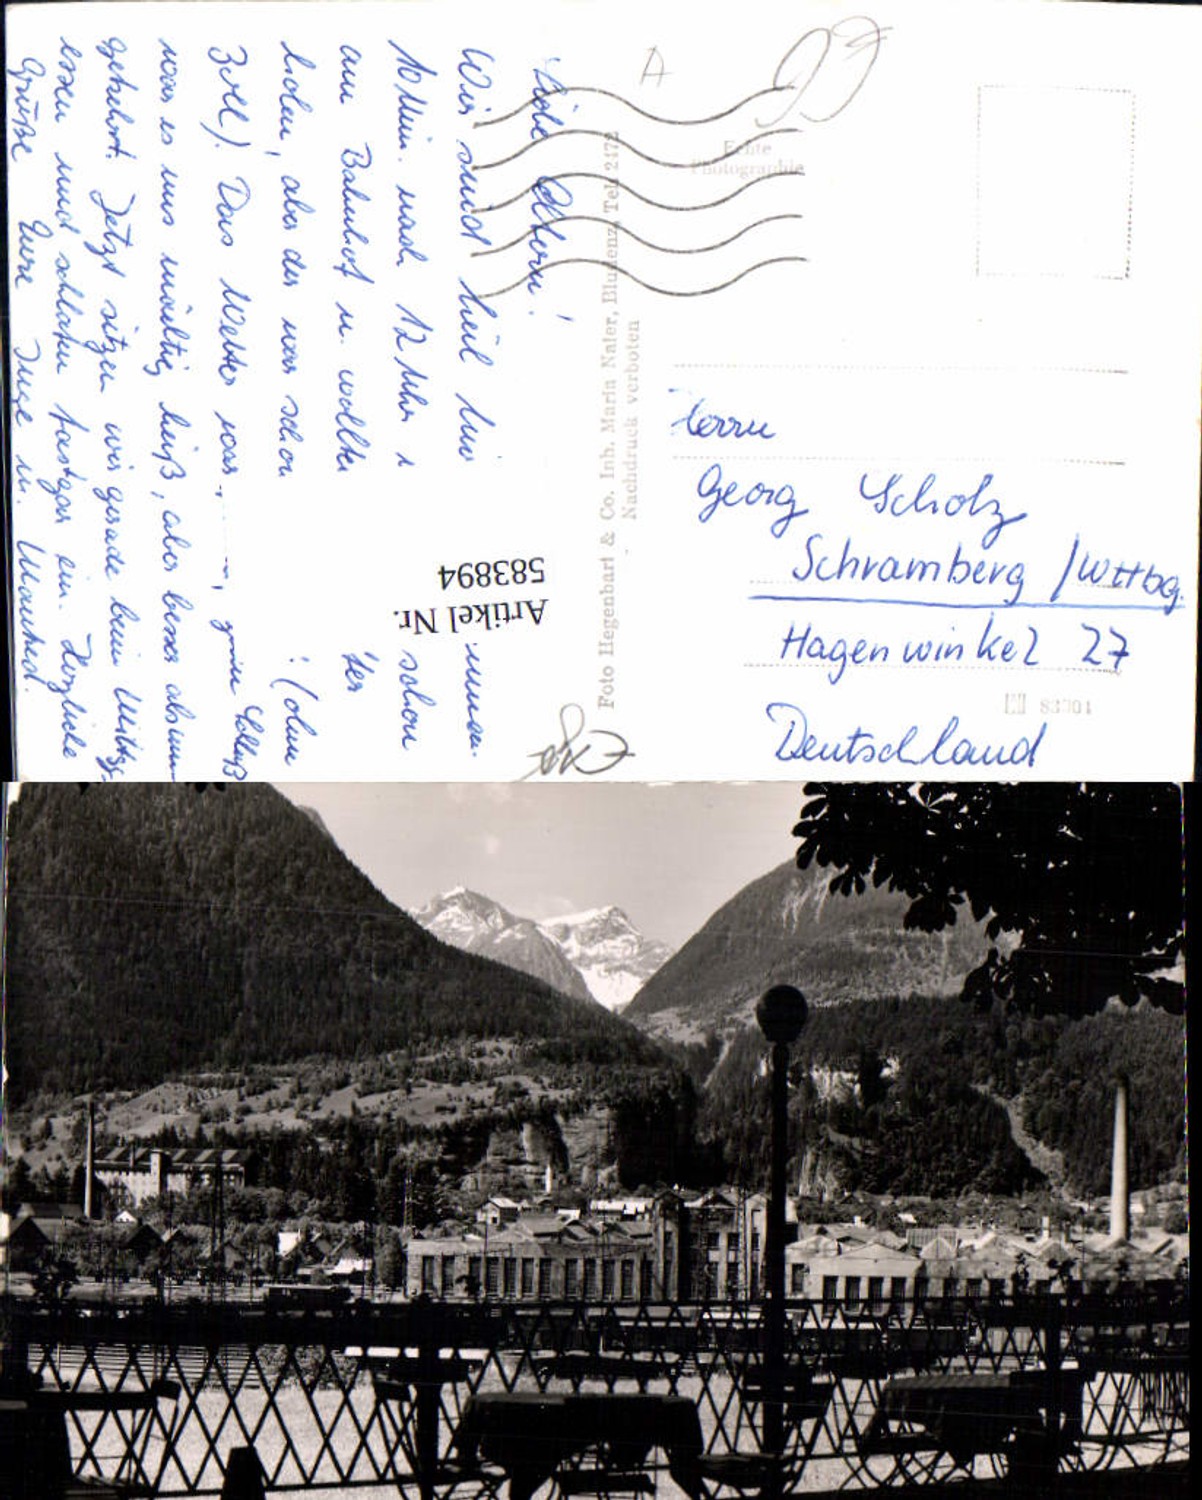 Liebe Eltern!
Wir sind heil hier
10 Min. nach 12 Uhr schon
am Bahnhof u. wollte
holen, aber der war schon (ohne
Zoll). Das Wetter war
was es uns mächtig heiß, aber besser als um-
gekehrt. Jetzt sitzen wir gerade beim Mittag-
essen und schlafen fast gar ein. Herzliche
Grüße Eure Inge u. Manfred.
Artikel Nr.
583894
Foto Hegenbart & Co. Inh. Maria Naier, Bludenz, Tel. 2172
Nachdruck verboten
Echte
Photographie
A
Herrn
Georg Scholz
Schramberg / Wttbg.
Hagenwinkel 27
Deutschland